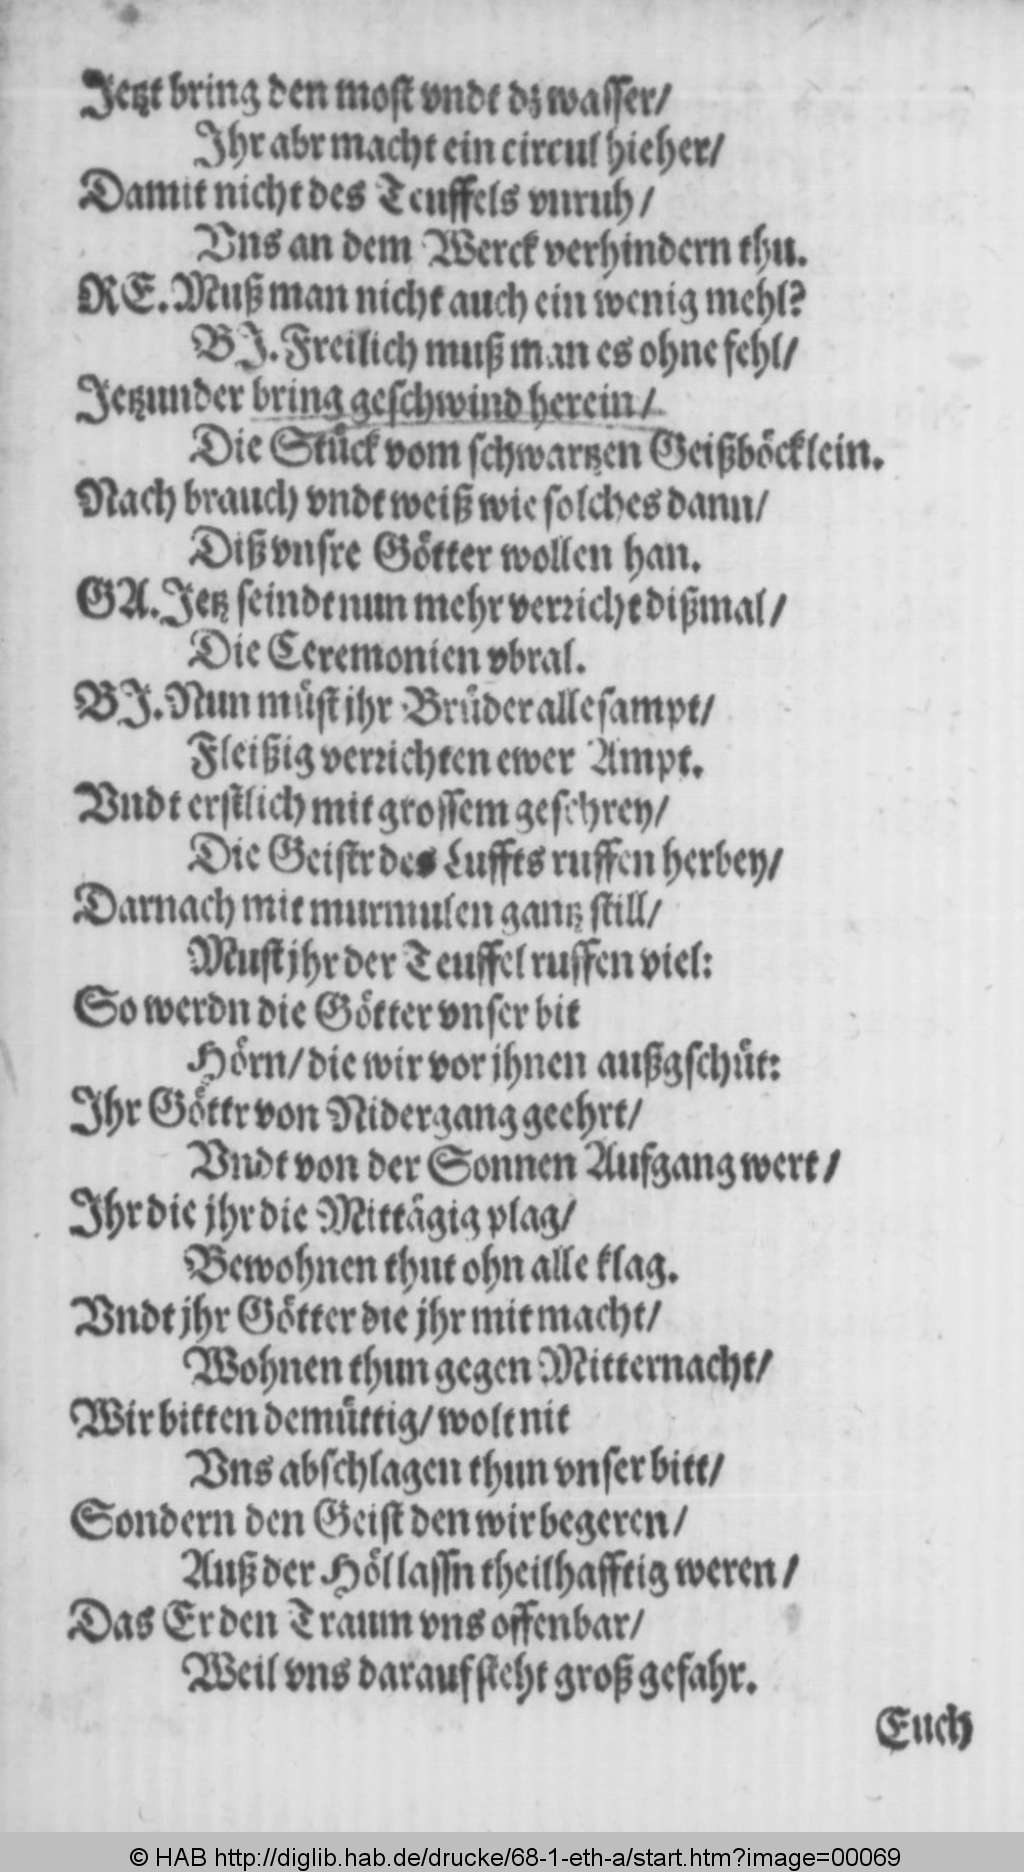 Jetzt bring den most vndt dz wasser/
Ihr abr macht ein circul hieher/
Damit nicht des Teuffels vnruh/
Vns an dem Werck verhindern thu.
RE. Muß man nicht auch ein wenig mehl?
BJ. Freilich muß man es ohne fehl/
Jetzunder bring geschwind herein/
Die Stück vom schwartzen Geißböcklein.
Nach brauch vndt weiß wie solches dann/
Diß vnsre Götter wollen han.
GA. Jetz seindt nun mehr verricht dißmal/
Die Ceremonien vbral.
BJ. Nun müst jhr Brüder allesampt/
Fleißig verrichten ewer Ampt.
Vndt erstlich mit grossem geschrey/
Die Geistr des Luffts ruffen herbey/
Darnach mit murmulen gantz still/
Must jhr der Teuffel ruffen viel:
So werdn die Götter vnser bit
Hörn/ die wir vor jhnen außgschüt:
Ihr Göttr von Nidergang geehrt/
Vndt von der Sonnen Aufgang wert/
Ihr die jhr die Mittägig plag/
Bewohnen thut ohn alle klag.
Vndt jhr Götter die jhr mit macht/
Wohnen thun gegen Mitternacht/
Wir bitten demüttig/ wolt nit
Vns abschlagen thun vnser bitt/
Sondern den Geist den wir begeren/
Auß der Höl lassn theilhafftig weren/
Das Er den Traum vns offenbar/
Weil vns darauf steht groß gefahr.
Euch
© HAB http://diglib.hab.de/drucke/68-1-eth-a/start.htm?image=00069